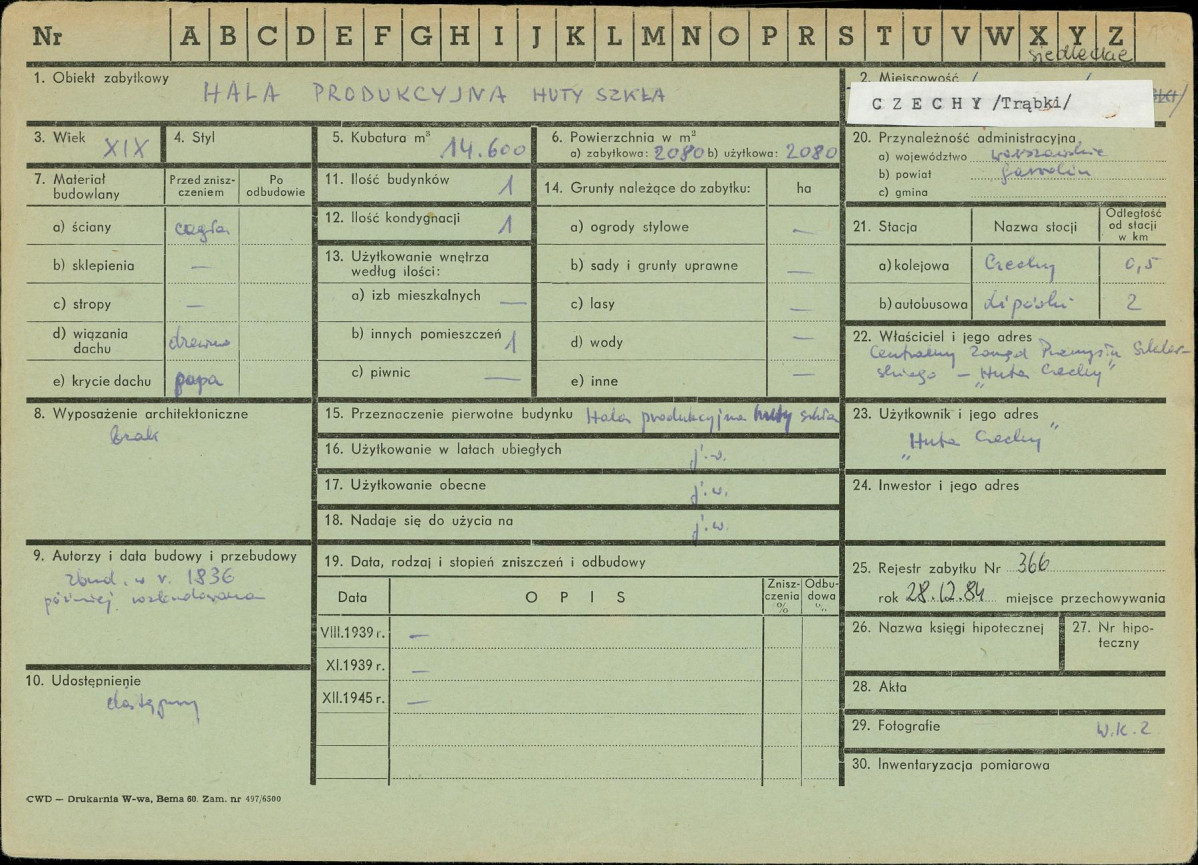 Nr A B C D E F G H I J K L M N O P R S T U V W X Y Z
siedleckie
1. Obiekt zabytkowy
HALA PRODUKCYJNA HUTY SZKŁA
2. Miejscowość
CZECHY /Trąbki/
3. Wiek XIX
4. Styl
5. Kubatura m³ 14.600
6. Powierzchnia w m²
a) zabytkowa: 2080 b) użytkowa: 2080
7. Materiał budowlany
Przed zniszczeniem
Po odbudowie
a) ściany cegła
b) sklepienia —
c) stropy —
d) wiązania dachu drewno
e) krycie dachu papa
8. Wyposażenie architektoniczne
brak
9. Autorzy i data budowy i przebudowy
zbud. w r. 1836
później rozbudowana
10. Udostępnienie
dostępny
11. Ilość budynków 1
12. Ilość kondygnacji 1
13. Użytkowanie wnętrza
według ilości:
a) izb mieszkalnych —
b) innych pomieszczeń 1
c) piwnic —
14. Grunty należące do zabytku: ha
a) ogrody stylowe —
b) sady i grunty uprawne —
c) lasy —
d) wody —
e) inne —
15. Przeznaczenie pierwotne budynku Hala produkcyjna huty szkła
16. Użytkowanie w latach ubiegłych j.w.
17. Użytkowanie obecne j.w.
18. Nadaje się do użycia na j.w.
19. Data, rodzaj i stopień zniszczeń i odbudowy
Data OPIS Zniszczenia % Odbudowa %
VIII.1939 r. —
XI.1939 r. —
XII.1945 r. —
20. Przynależność administracyjna
a) województwo warszawskie
b) powiat Garwolin
c) gmina
21. Stacja Nazwa stacji Odległość od stacji w km
a) kolejowa Czechy 0,5
b) autobusowa Lipówki 2
22. Właściciel i jego adres
Centralny Zarząd Przemysłu Szklar-
skiego — „Huta Czechy"
23. Użytkownik i jego adres
„Huta Czechy"
24. Inwestor i jego adres
25. Rejestr zabytku Nr 366
rok 28.12.84 miejsce przechowywania
26. Nazwa księgi hipotecznej
27. Nr hipoteczny
28. Akta
29. Fotografie W.K.2
30. Inwentaryzacja pomiarowa
CWD — Drukarnia W-wa, Bema 60. Zam. nr 497/6500